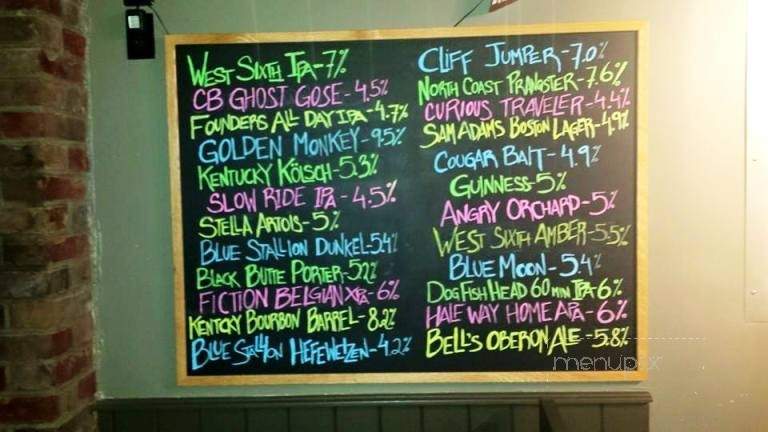 WEST SIXTH IPA-7%
CB GHOST GOSE-4.5%
FOUNDERS ALL DAY IPA-4.7%
GOLDEN MONKEY-9.5%
KENTUCKY KÖLSCH-5.3%
SLOW RIDE IPA-4.5%
STELLA ARTOIS-5%
BLUE STALLION DUNKEL-5.4%
BLACK BUTTE PORTER-5.2%
FICTION BELGIAN XPA-6%
KENTCKY BOURBON BARREL-8.2%
BLUE STALLION HEFEWEIZEN-4.2%
CLIFF JUMPER-7.0%
NORTH COAST PRANQSTER-7.6%
CURIOUS TRAVELER-4.4%
SAM ADAMS BOSTON LAGER-4.9%
COUGAR BAIT-4.9%
GUINNESS-5%
ANGRY ORCHARD-5%
WEST SIXTH AMBER-5.5%
BLUE MOON-5.4%
DOGFISH HEAD 60 MIN IPA 6%
HALF WAY HOME APA-6%
BELL'S OBERON ALE-5.8%
menupix